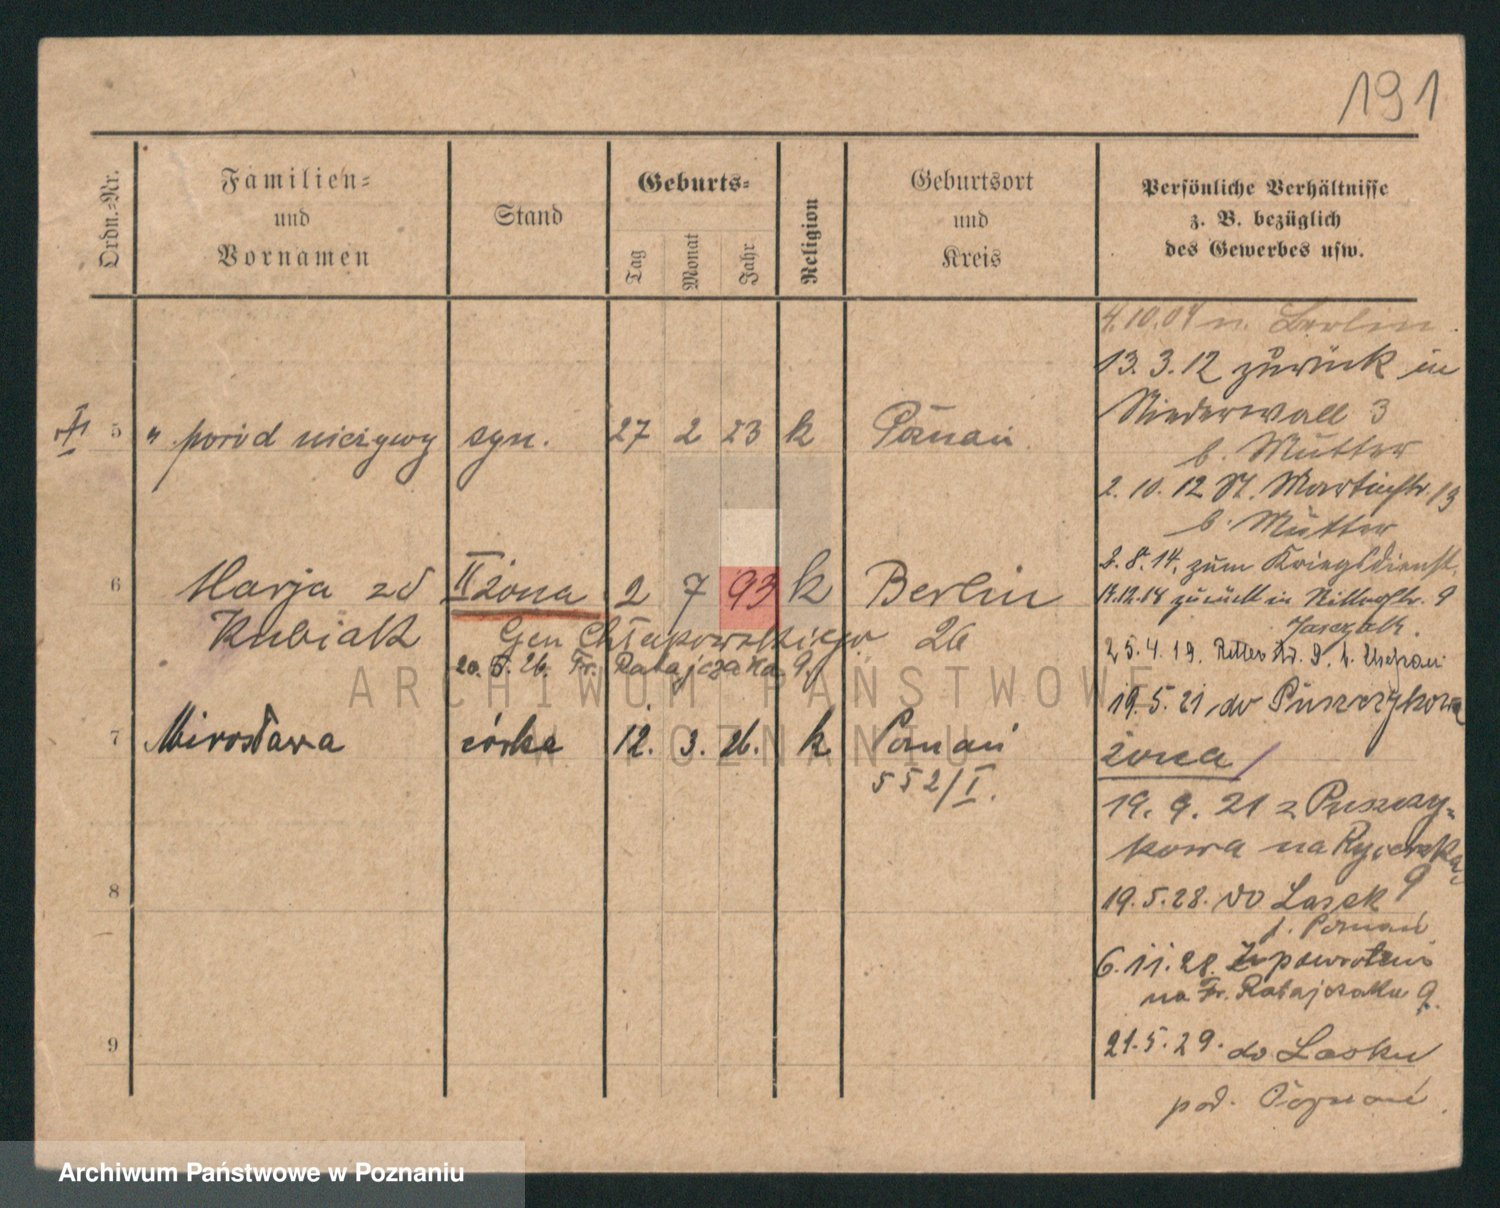 191
Ordn.-Nr.
Familien-
und
Vornamen
Stand
Geburts-
Tag
Monat
Jahr
Religion
Geburtsort
und
Kreis
Persönliche Verhältnisse
z. B. bezüglich
des Gewerbes usw.
5 " poród nieżywy syn. 27 2 23 k Poznań
6 Marja zd II żona 2 7 93 k Berlin
Kubiak Gen Chłapowskiego 26
20. 5. 26. Fr. Ratajczaka 9.
7 Mirosława córka 12. 3. 26. k. Poznań
552/I.
8
9
4.10.04 n. Berlin.
13.3.12 zurück in
Niederwall 3
b. Mutter
2.10.12 St. Martinstr. 13
b. Mutter
2.8.14. zum Kriegsdienst.
14.12.18 zurück in Ritterstr. 9
25.4.19. Ritterstr. 9. b.
19.5.21 do Puszczykowa
żona
19.9.21 z Puszczy-
kowa na Rycerska
9
19.5.28. do Lasek
p. Poznań
6.11.28. Z powrotem
na Fr. Ratajczaka 9.
21.5.29. do Lasku
pod. Poznań.
ARCHIWUM PAŃSTWOWE
W POZNANIU
Archiwum Państwowe w Poznaniu